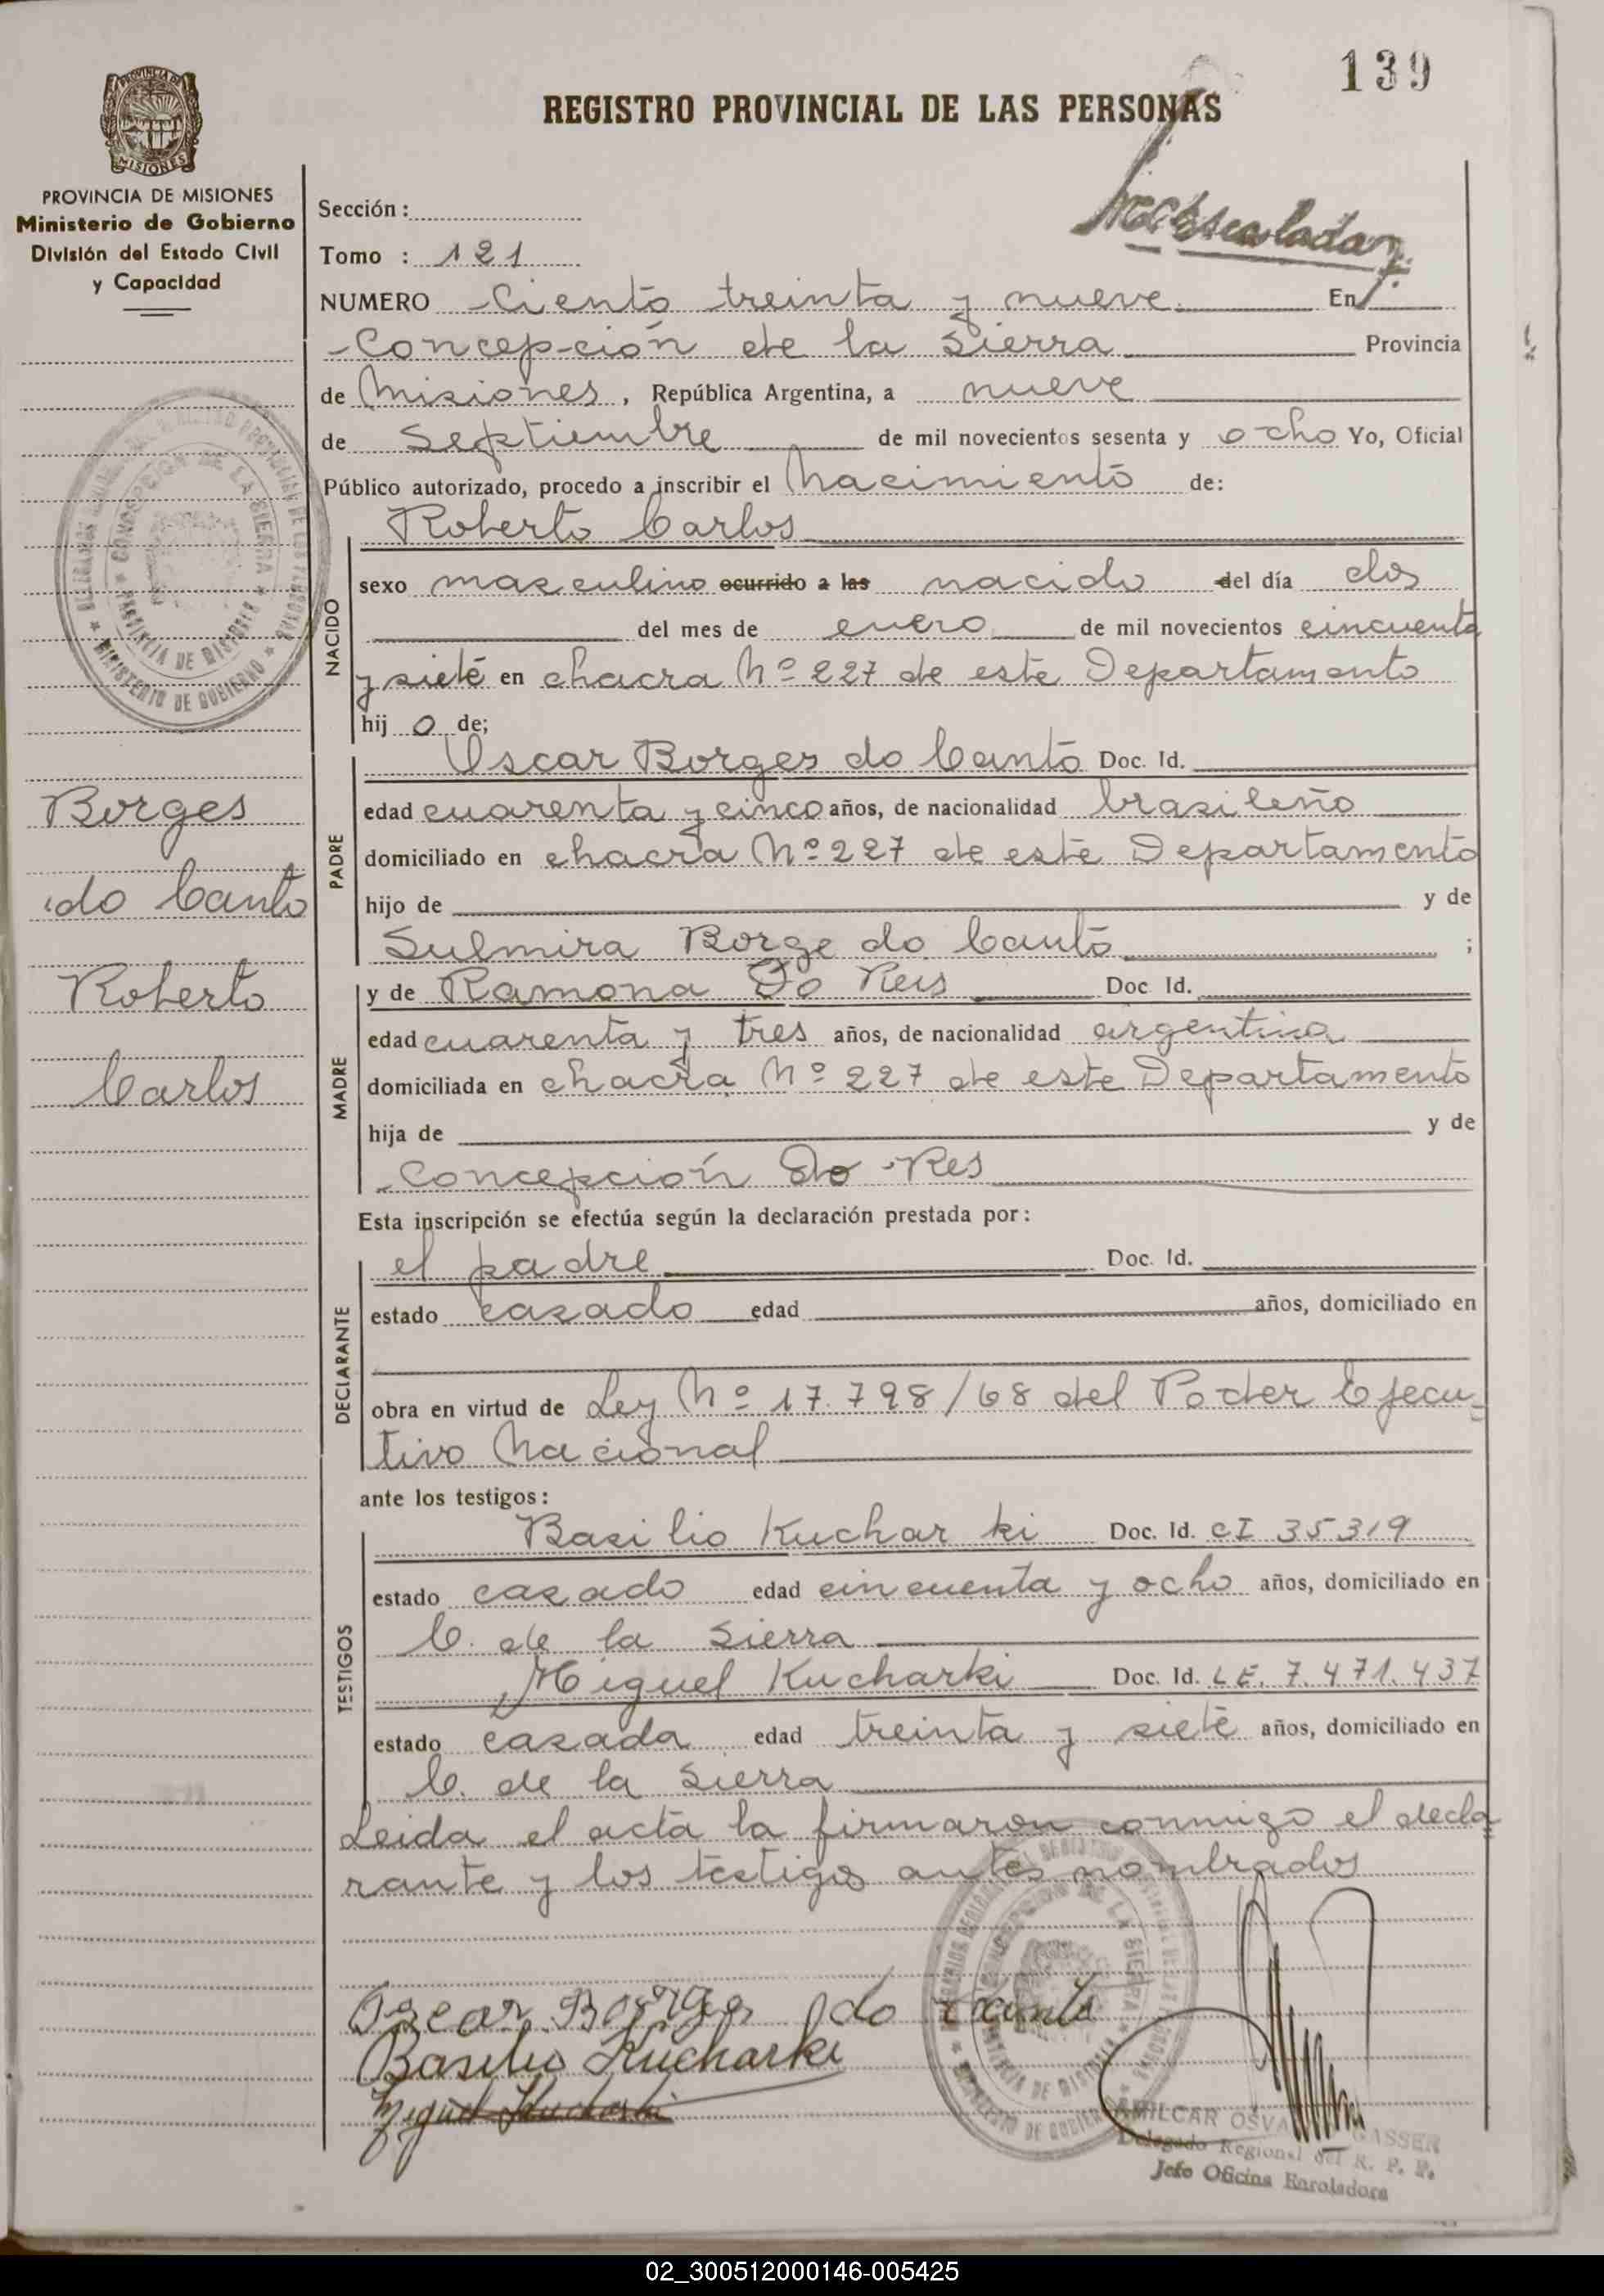 139
REGISTRO PROVINCIAL DE LAS PERSONAS
MISIONES
PROVINCIA DE MISIONES
Ministerio de Gobierno
División del Estado Civil
y Capacidad
Sección :
Tomo : 121
NUMERO Ciento treinta y nueve En
Concepción de la Sierra Provincia
de Misiones, República Argentina, a nueve
de Septiembre de mil novecientos sesenta y ocho Yo, Oficial
Público autorizado, procedo a inscribir el Nacimiento de:
Roberto Carlos
NACIDO
sexo masculino ocurrido a las nacido del día dos
del mes de enero de mil novecientos cincuenta
y siete en chacra Nº 227 de este Departamento
hij o de;
PADRE
Oscar Borges do Canto Doc. Id.
edad cuarenta y cinco años, de nacionalidad brasileño
domiciliado en chacra Nº 227 de este Departamento
hijo de y de
Sulmira Borge do Canto ;
MADRE
y de Ramona Do Reis Doc. Id.
edad cuarenta y tres años, de nacionalidad argentina
domiciliada en chacra Nº 227 de este Departamento
hija de y de
Concepción Do Res
Borges
do Canto
Roberto
Carlos
Esta inscripción se efectúa según la declaración prestada por:
DECLARANTE
el padre Doc. Id.
estado casado edad años, domiciliado en
obra en virtud de Ley Nº 17.798/68 del Poder Ejecu-
tivo Nacional
ante los testigos:
TESTIGOS
Basilio Kucharki Doc. Id. CI 35319
estado casado edad cincuenta y ocho años, domiciliado en
C. de la Sierra
Miguel Kucharki Doc. Id. LE. 7.471.437
estado casada edad treinta y siete años, domiciliado en
C. de la Sierra
Leida el acta la firmaron conmigo el decla
rante y los testigos antes nombrados
Oscar Borges do Canto
Basilio Kucharki
Miguel Kucharki
AMILCAR OSVA GASSER
Delegado Regional del R. P. P.
Jefe Oficina Enroladora
CONCEPCION DE LA SIERRA
PROVINCIA DE MISIONES
MINISTERIO DE GOBIERNO
02_300512000146-005425